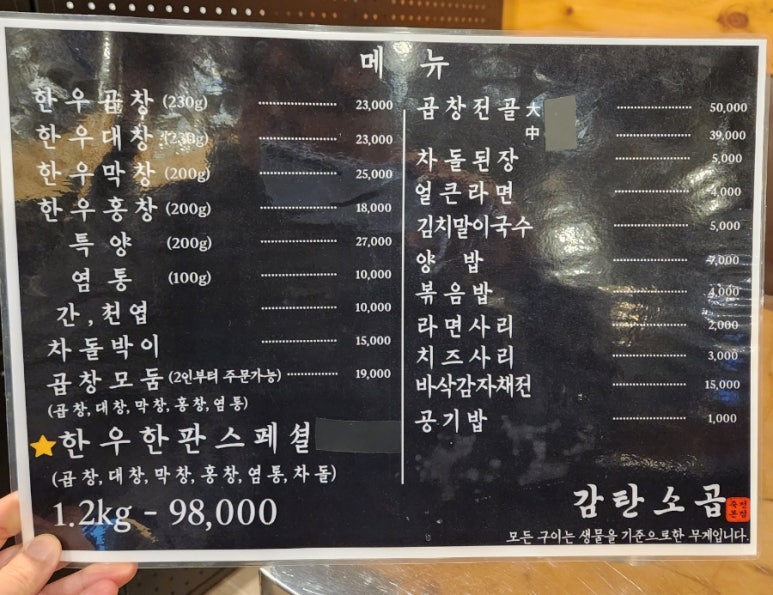 메 뉴
한우곱창 (230g) 23,000
한우대창 (230g) 23,000
한우막창 (200g) 25,000
한우홍창 (200g) 18,000
특 양 (200g) 27,000
염 통 (100g) 10,000
간, 천엽 10,000
차돌박이 15,000
곱창모둠 (2인부터 주문가능) 19,000
(곱창, 대창, 막창, 홍창, 염통)
한우한판스페셜
(곱창, 대창, 막창, 홍창, 염통, 차돌)
1.2kg - 98,000
곱창전골 大 50,000
中 39,000
차돌된장 5,000
얼큰라면 4,000
김치말이국수 5,000
양 밥 7,000
볶음밥 4,000
라면사리 2,000
치즈사리 3,000
바삭감자채전 15,000
공기밥 1,000
감탄소곱
모든 구이는 생물을 기준으로한 무게입니다.